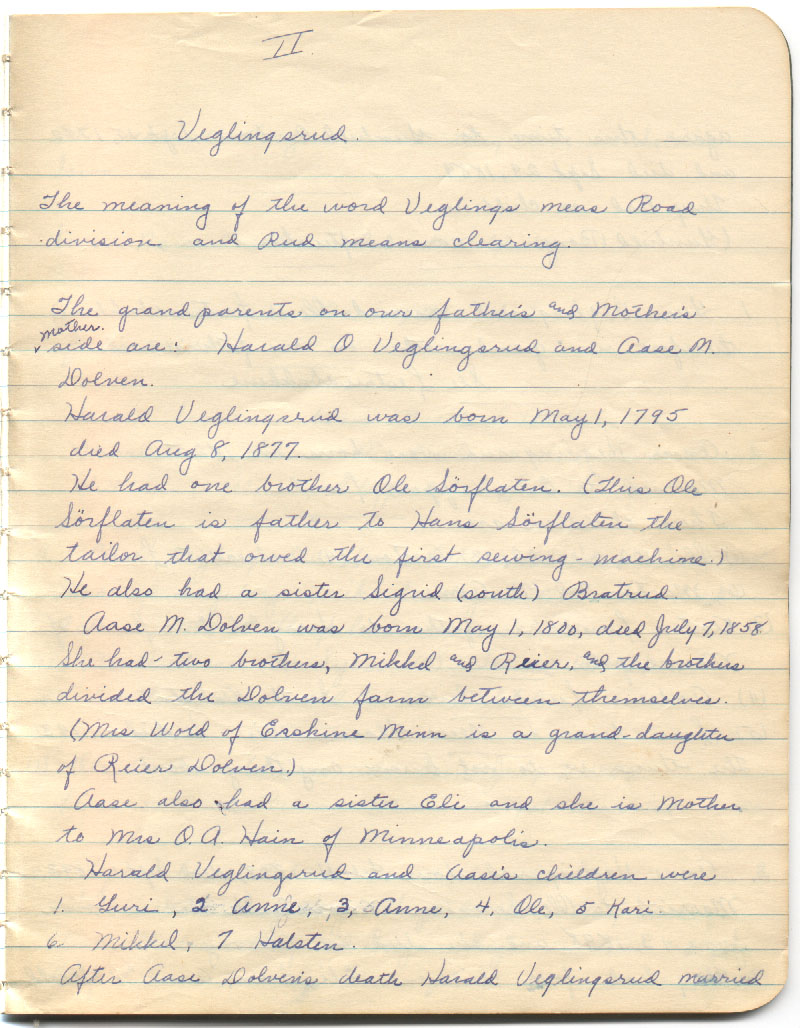 II.
Veglingsrud.
The meaning of the word Veglings meas Road
division and Rud means clearing.
The grand parents on our father's and Mother's
mother.
side are: Harald O Veglingsrud and Aase M.
Dolven.
Harald Veglingsrud was born May 1, 1795
died Aug 8, 1877.
He had one brother Ole Sörflaten. (This Ole
Sörflaten is father to Hans Sörflaten the
tailor that owed the first sewing-machine.)
He also had a sister Sigrid (south) Bratrud.
Aase M. Dolven was born May 1, 1800, died July 7, 1858
She had two brothers, Mikkel and Reier, and the brothers
divided the Dolven farm between themselves.
(Mrs Wold of Erskine Minn is a grand-daughter
of Reier Dolven.)
Aase also had a sister Eli and she is Mother
to Mrs O.A. Hain of Minneapolis.
Harald Veglingsrud and Aasis children were
1. Guri, 2 Anne, 3, Anne, 4, Ole, 5 Kari.
6 Mikkel, 7 Halsten.
After Aase Dolven's death Harald Veglingsrud married